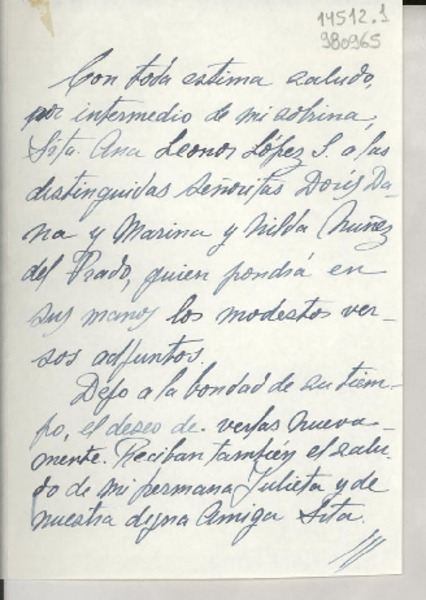 14512.1
980965
Con toda estima saludo,
por intermedio de mi sobrina,
Srta. Ana Leonor López S. a las
distinguidas señoritas Doris Da-
na y Marina y Nilda Núñez
del Prado, quien pondrá en
sus manos los modestos ver-
sos adjuntos.
Dejo a la bondad de su tiem-
po, el deseo de verlas nueva-
mente. Reciban también el salu-
do de mi hermana Julieta y de
nuestra digna amiga Srta.